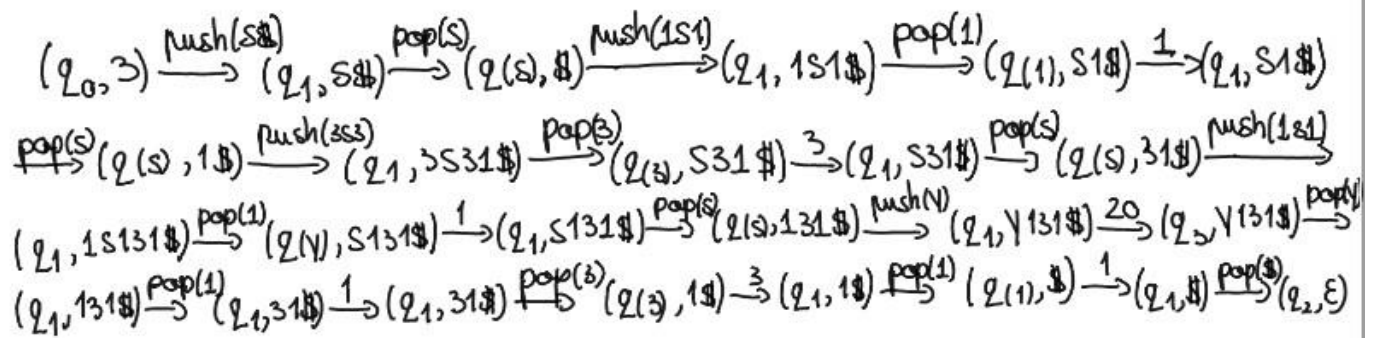 (q0, 3) push(S$)→ (q1, S$) pop(S)→ (q(S), $) push(1S1)→ (q1, 1S1$) pop(1)→ (q(1), S1$) 1→ (q1, S1$)
pop(S)→ (q(S), 1$) push(3S3)→ (q1, 3S31$) pop(3)→ (q(3), S31$) 3→ (q1, S31$) pop(S)→ (q(S), 31$) push(1S1)→
(q1, 1S131$) pop(1)→ (q(Y), S131$) 1→ (q1, S131$) pop(S)→ (q(S), 131$) push(Y)→ (q1, Y131$) 20→ (q3, Y131$) pop(Y)→
(q1, 131$) pop(1)→ (q1, 31$) 1→ (q1, 31$) pop(3)→ (q(3), 1$) 3→ (q1, 1$) pop(1)→ (q(1), $) 1→ (q1, $) pop($)→ (q2, ε)